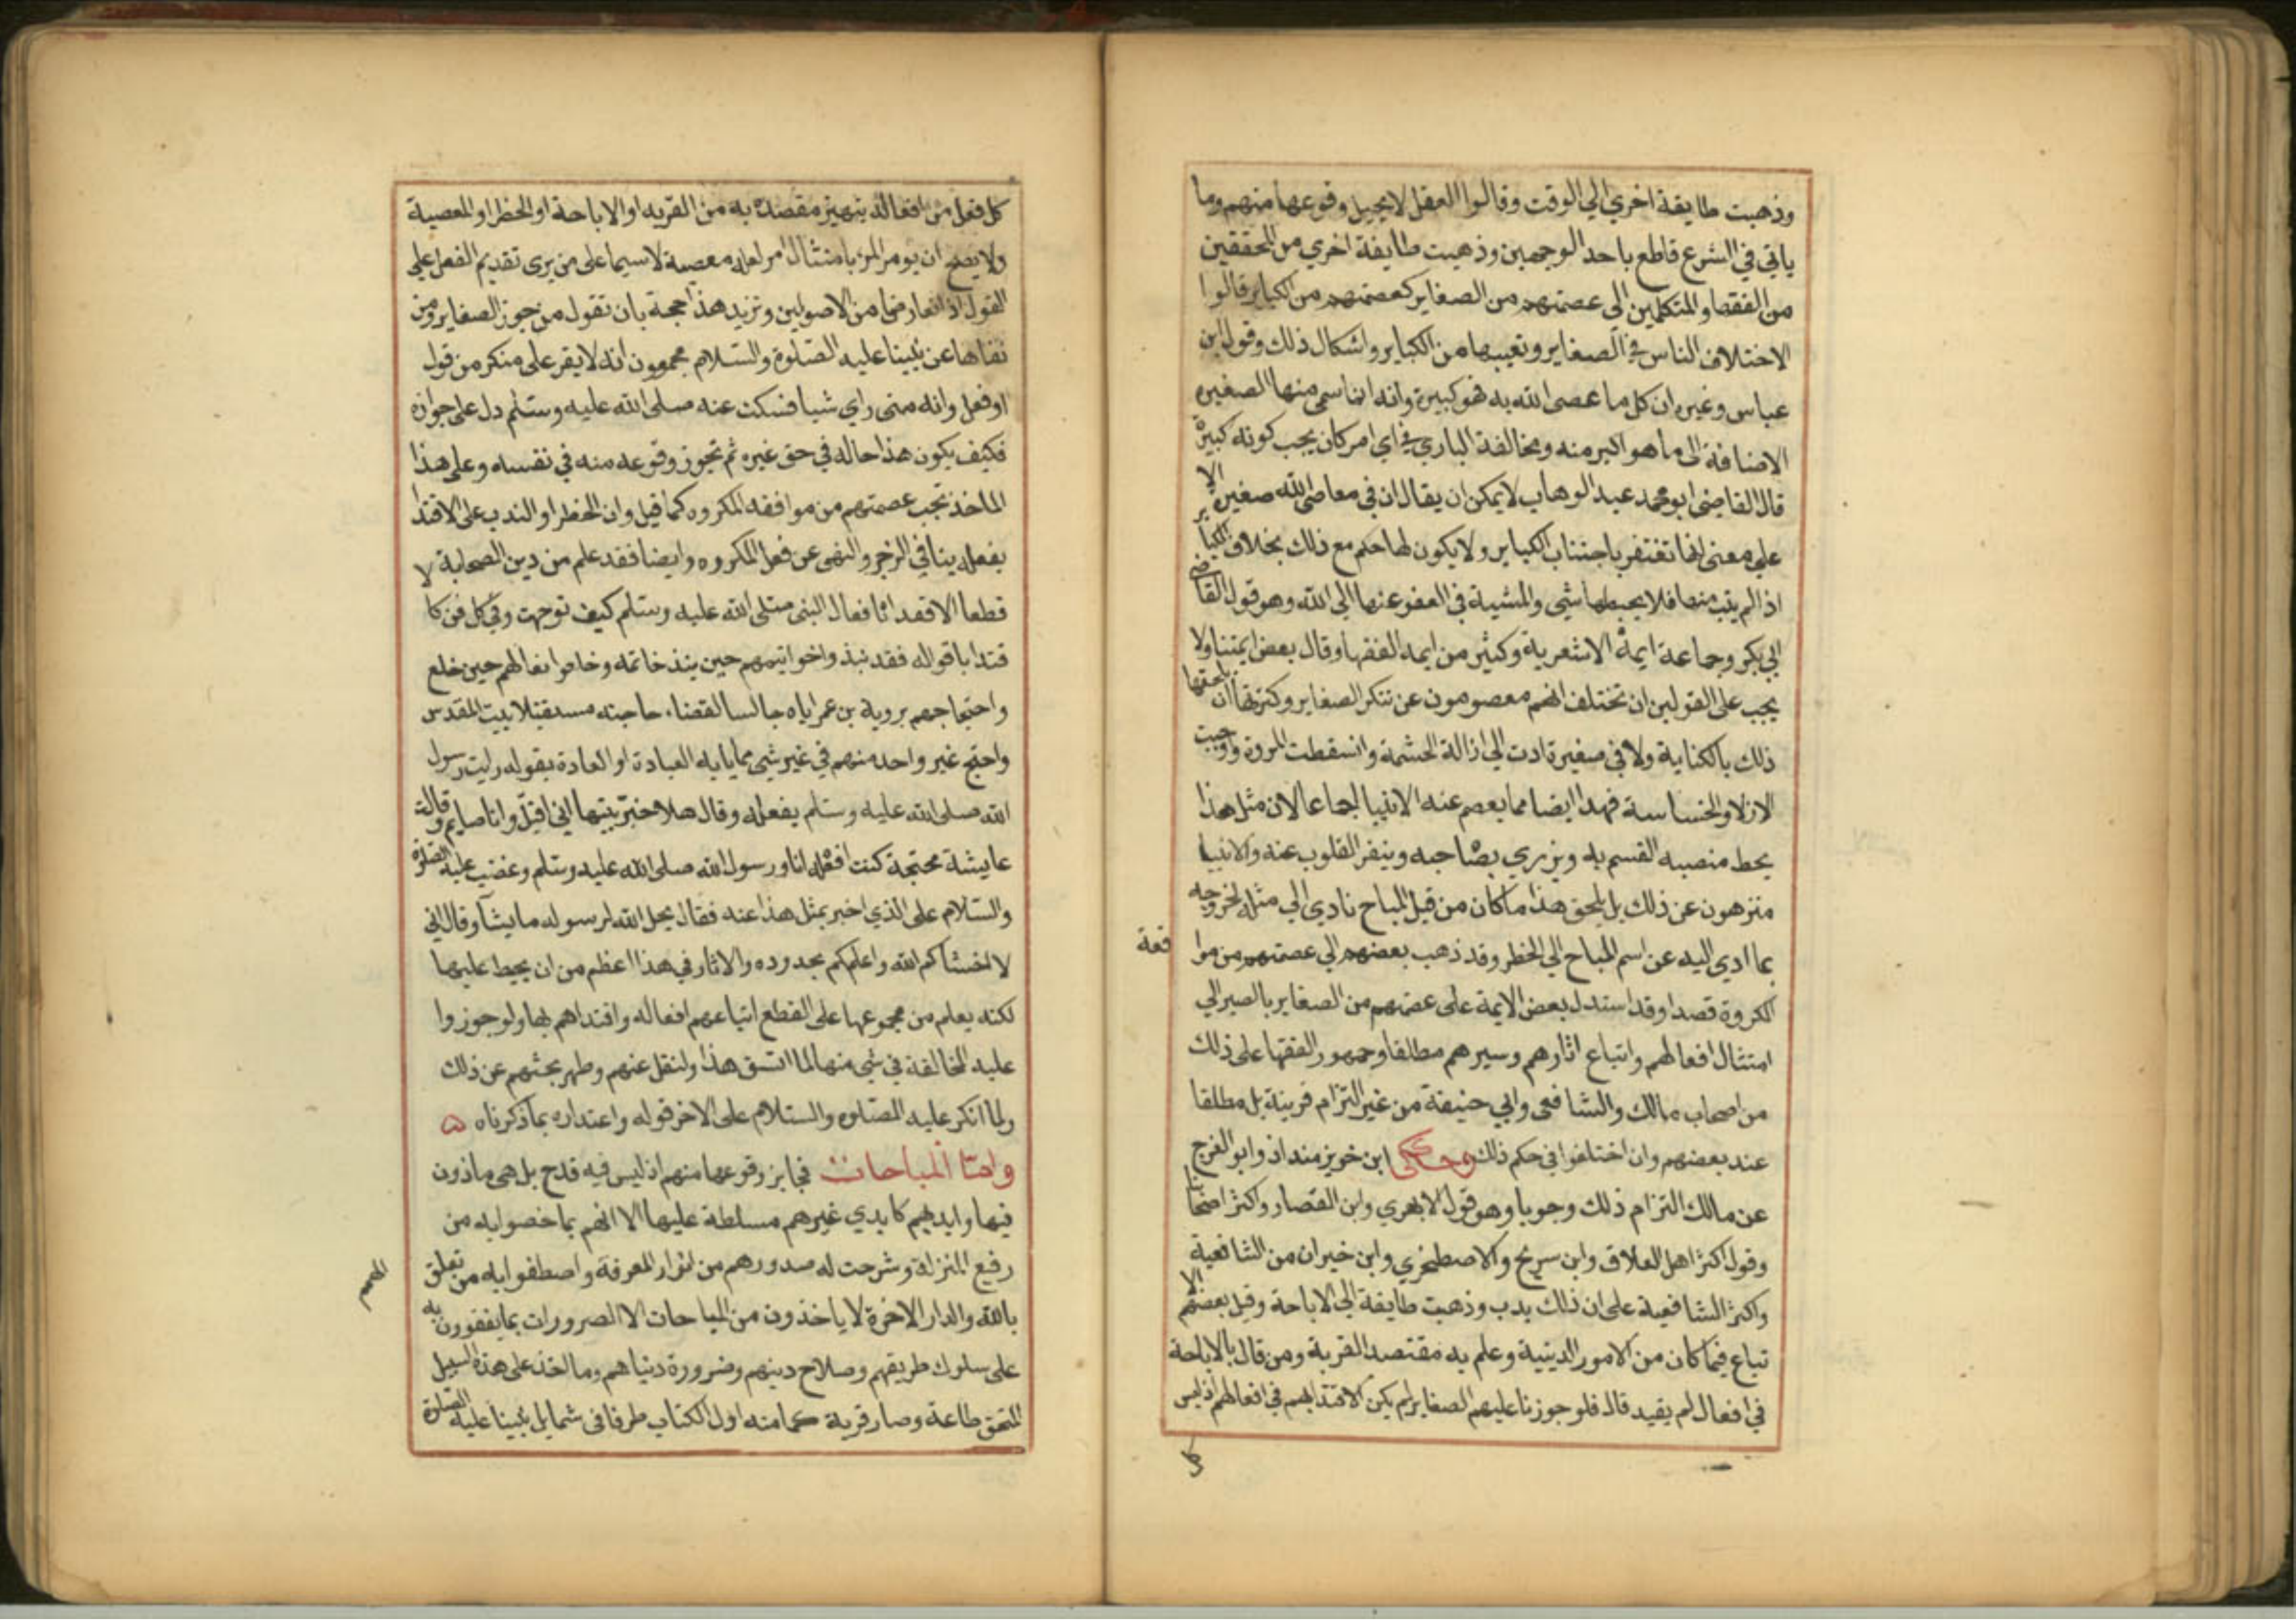 وذهبت طايفة اخري الي الوقت وقالوا العقل لا يحيل وقوعها منهم وما
ياتي في الشرع قاطع باحد الوجهين وذهبت طايفة اخري من المحققين
من الفقها والمتكلمين الى عصمتهم من الصغاير كعصمتهم من الكباير قالوا
لاختلاف الناس في الصغاير وتعيينها من الكباير واشكال ذلك وقول ابن
عباس وغيره ان كل ما عصى الله به فهو كبيرة وانه انما سمى منها الصغيره
الاضافة الى ما هو اكبر منه ومخالفة الباري في اي امر كان يجب كونه كبيرة
قال القاضى ابو محمد عبد الوهاب لا يمكن ان يقال ان في معاصى الله صغيرة الا
علي معنى انها تغتفر باجتناب الكباير ولا يكون لها حكم مع ذلك بخلاف الكباير
اذا لم يتب منها فلا يحبطها شي والمشية في العفو عنها الي الله وهو قول القاضي
ابي بكر وجماعة ايمة الاشعرية وكثير من ايمه الفقها وقال بعض ايمتنا ولا
يجب على القولين ان تختلف انهم معصومون عن تنكر الصغاير وكثرتها ان يلحقها
ذلك بالكناية ولا في صغيرة ادت الي ازالة الحشمة واسقطت المروة واوجبت
الازلا والخساسة فهذا ايضا مما يعصم عنه الانبيا اجماعا لان مثل هذا
يحط منصبه القسم به ويزري بصاحبه وينفر القلوب عنه والانبيا
منزهون عن ذلك بل يلحق هذا ما كان من قبل المباح نادي الي مثله لخروجه
بما ادي اليه عن اسم المباح الي الخطر وقد ذهب بعضهم الي عصمتهم من موا
قعة
المكروة قصدا وقد استدل بعض الايمة على عصمتهم من الصغاير بالصير الي
امتثال افعالهم واتباع اثارهم وسيرهم مطلقا وجمهور الفقها على ذلك
من اصحاب مالك والشافعى وابي حنيفة من غير التزام قرينة بل مطلقا
عند بعضهم وان اختلفوا في حكم ذلك وحكى ابن خويز منداذ وابو الفرج
عن مالك التزام ذلك وجوبا وهو قول الابهري وابن القصار واكثر اصحابنا
وقول اكثر اهل العلاق وابن سريج والاصطخري وابن خيران من الشافعية
واكثر الشافعية على ان ذلك يدب وذهبت طايفة الي الاباحة وقيل بعضهم الا
تباع فيما كان من الامور الدينية وعلم به مقتصد القربة ومن قال بالاباحة
في افعال لم يفيد قال فلو جوزنا عليهم الصغاير لم يكن الاقتدا بهم في افعالهم اذ ليس
كل
كل فعل من افعاله يتميز مقصده به من القربه او الاباحة او الحظر او المعصية
ولا يصح ان يومر المرء بامتثال امر لعله معصية لا سيما على من يرى تقديم الفعل على
القول اذا تعارضا من الاصولين ونزيد هذا حجة بان نقول من جوز الصغاير ومن
نفاها عن نبينا عليه الصلوة والسلام مجمعون انه لا يقر على منكر من قول
او فعل وانه متى راي شيا فسكت عنه صلى الله عليه وسلم دل على جوازه
فكيف يكون هذا حاله في حق غيره ثم تجوز وقوعه منه في نفسه وعلى هذا
الماخذ تجب عصمتهم من موافقه المكروه كما قيل وان الحظر او الندب على الاقتدا
بفعله ينافي الزجر والنهى عن فعل المكروه وايضا فقد علم من دين الصحابة لا
قطعا الاقتدا بافعال النبى صلى الله عليه وسلم كيف توجهت وفي كل فن كا
قتدا باقواله فقد نبذوا خواتيمهم حين نبذ خاتمه وخلعوا نعالهم حين خلع
واحتجاجهم بروية بن عمر اياه جالسا لقضاء حاجته مستقبلا بيت المقدس
واحتج غير واحد منهم في غير شي مما بابه العبادة او العادة بقوله رايت رسول
الله صلى الله عليه وسلم يفعله وقال هلا خبرتيها اني اقبل وانا صايم وقالت
عايشة محتجة كنت افعله انا ورسول الله صلى الله عليه وسلم وغضب عليه الصلوة
والسلام على الذي اخبر بمثل هذا عنه فقال يحل الله لرسوله ما يشآ وقال اني
لاخشاكم الله واعلمكم بحدوده والاثار في هذا اعظم من ان يحيط عليها
لكنه يعلم من مجموعها على القطع اتباعهم افعاله واقتداهم بها ولو جوزوا
عليه المخالفة في شي منها لما اتسق هذا ولنقل عنهم وظهر بحثهم عن ذلك
ولما انكر عليه الصلوه والسلام على الاخر قوله واعتذاره بما ذكرناه ه
واما المباحات فجايز وقوعها منهم اذ ليس فيه قدح بل هى ماذون
فيها وايديهم كايدي غيرهم مسلطة عليها الا انهم بما خصوا به من
رفيع المنزلة وشرحت له صدورهم من انوار المعرفة واصطفوا به من تعلق
الهمم
بالله والدار الاخرة لا ياخذون من المباحات الا الضرورات بما يتقوون به
على سلوك طريقهم وصلاح دينهم وضرورة دنياهم وما اخذ على هذه السبيل
التحق طاعة وصار قربة كما منه اول الكتاب طرفا في شمايل نبينا عليه الصلوة